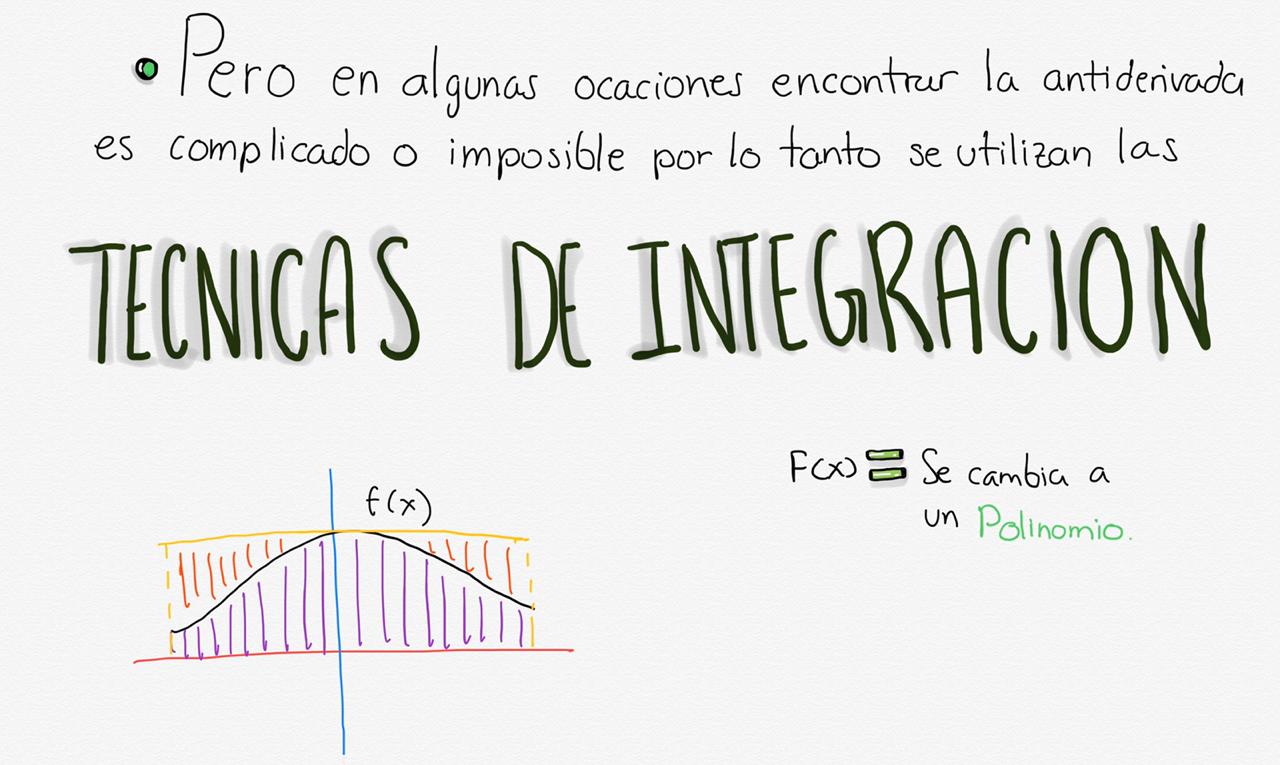 Pero en algunas ocaciones encontrar la antiderivada
es complicado o imposible por lo tanto se utilizan las
TECNICAS DE INTEGRACION
f(x)
F(x) = Se cambia a
un Polinomio.